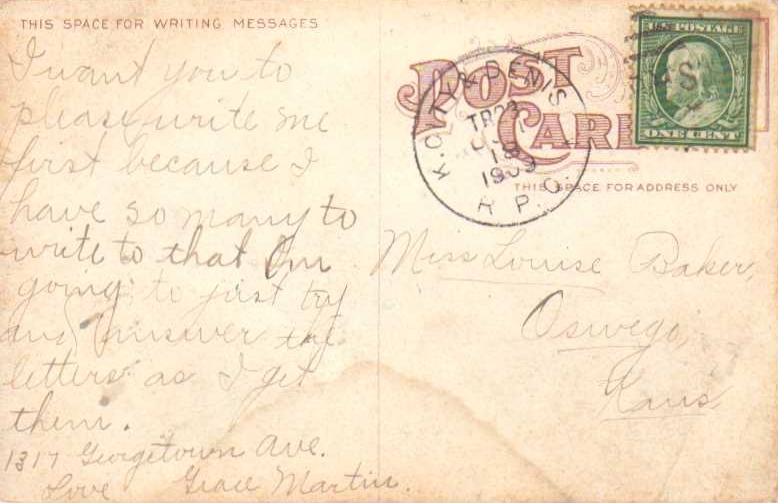 THIS SPACE FOR WRITING MESSAGES
I want you to
please write me
first because I
have so many to
write to that I'm
going to just try
and answer the
letters as I get
them.
1317 Georgetown Ave.
Love Grace Martin.
POST
CARD
U.S. POSTAGE
ONE CENT
K.C. & DENIS
TR 23
18
1909
R.P.O.
THIS SPACE FOR ADDRESS ONLY
Miss Louise Baker,
Oswego,
Kans